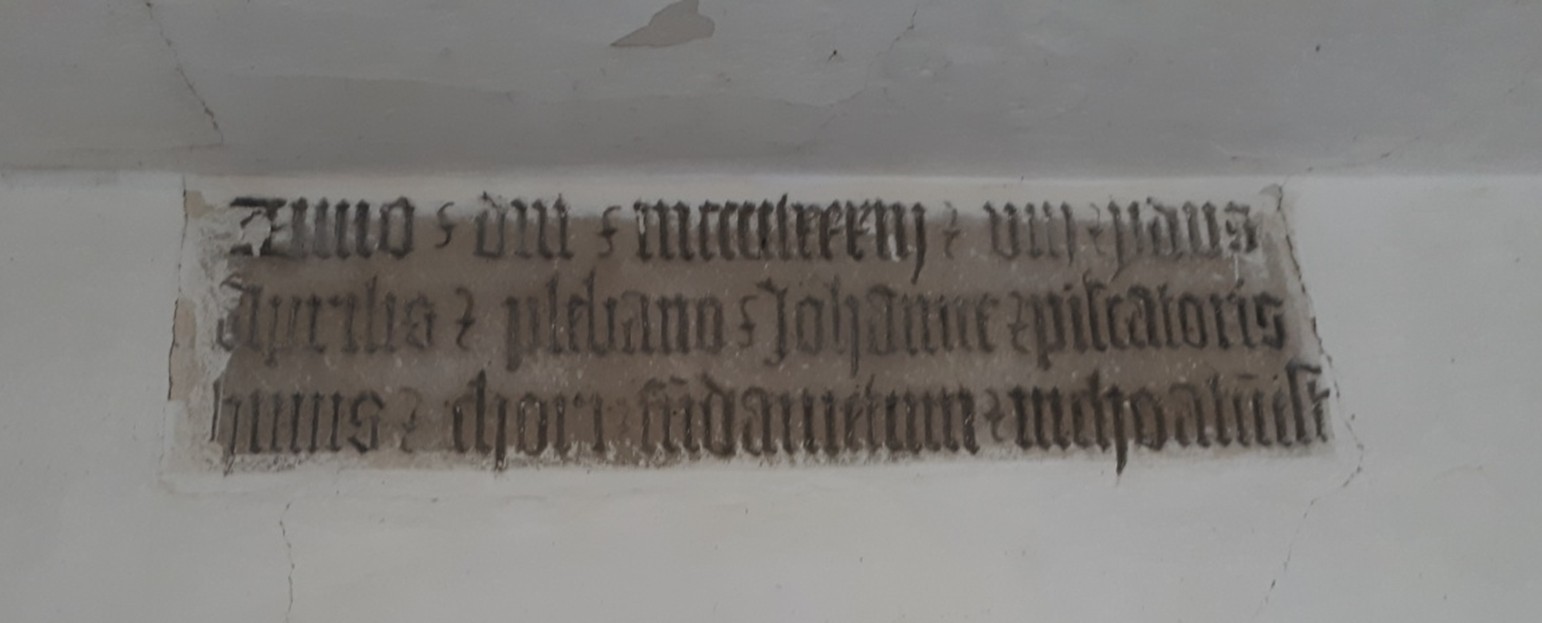 Anno dm mcccclxxxiiij viij ydus
Aprilis plebano Johanne piscatoris
huius chori fūdamētum inchoatū ist